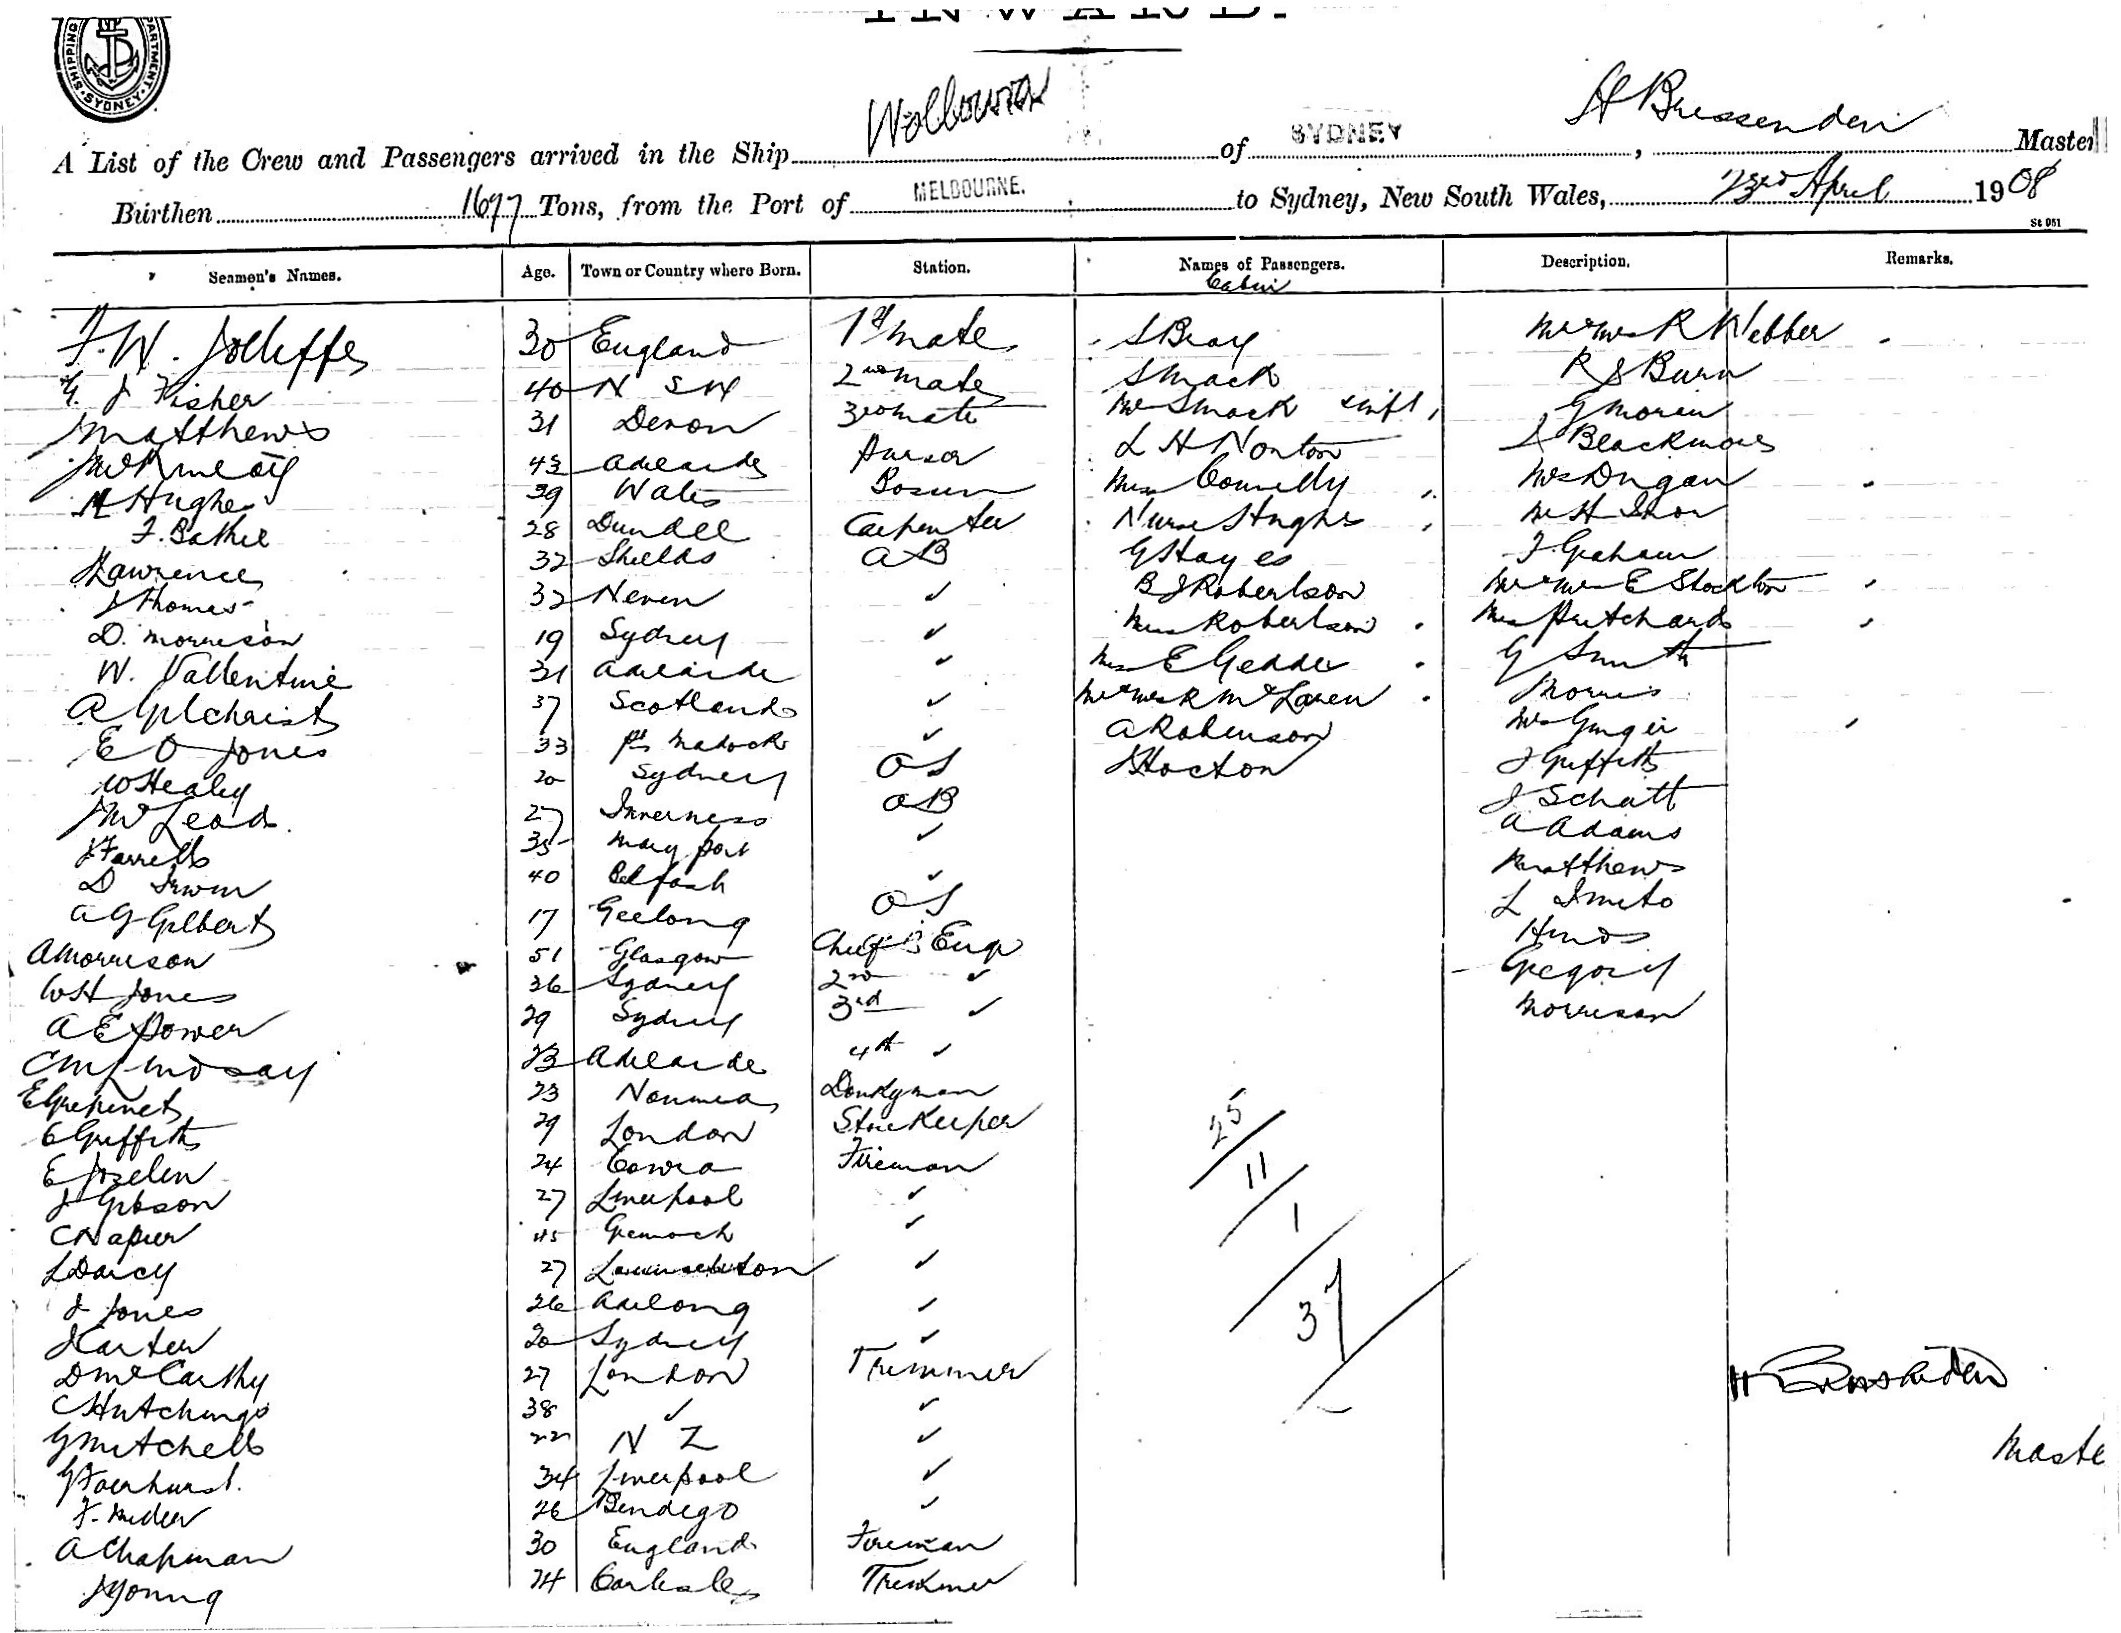 INWARD.
SHIPPING DEPARTMENT SYDNEY
A List of the Crew and Passengers arrived in the Ship Wollowra of SYDNEY, H Bressenden Master
Burthen 1697 Tons, from the Port of MELBOURNE. to Sydney, New South Wales, 23rd April 1908
St 951
Seamen's Names. Age. Town or Country where Born. Station. Names of Passengers. Description. Remarks.
Cabin
F. W. Jolliffe 30 England 1st Mate S Bray Mr & Mrs R Webber
G. J Fisher 40 N S W 2nd Mate S Mack R S Burn
J Matthews 31 Devon 3rd Mate Mrs S Mack & inft G Moren
43 Adelaide Purser L H Norton S Blackmore
H Hughes 39 Wales Bosun Miss Connelly Mrs Dugan
F. Bathie 28 Dundee Carpenter Nurse Hughes Mr H
J Lawrence 32 Shields A B G Hayes F. Graham
J Thomas 32 Neven ✓ B J Robertson Mr & Mrs E Stockton
D. Morrison 19 Sydney ✓ Miss Robertson Mrs Pritchard
W. Vallentine 31 Adelaide ✓ Mrs E Gedde G Smith
A Gilchrist 37 Scotland ✓ Mr & Mrs R McLaren Morris
E O Jones 33 Pt Madock ✓ A Robinson Mrs Ginger
W Healy 20 Sydney O S J Hocton J Griffith
J McLeod 27 Inverness A B J Schatt
J Farrell 35 Mary port ✓ A Adams
D Irwin 40 Belfast ✓ Matthews
A G Gilbert 17 Geelong O S L
A Morrison 51 Glasgow Chief Eng Hinds
W H Jones 36 Sydney 2nd ✓ Gregory
A E Power 29 Sydney 3rd ✓ Morrison
C M Lindsay 23 Adelaide 4th ✓
23 Noumea Donkyman
C Griffiths 29 London StoreKeeper
E Jozelin 24 Cowra Fireman
J Gibson 27 Liverpool ✓
C Napier 45 Grenoch ✓
L Darcy 27 Launceston ✓
J Jones 26 Adelong ✓
J Carter 20 Sydney ✓
D McCarthy 27 London Trimmer
C Hutchings 38 ✓ ✓
G Mitchell 22 N Z ✓
G Fairhurst. 34 Liverpool ✓
F. 26 Bendigo ✓
A Chapman 30 England Fireman
J Young 24 Carlisle Trimmer
25
11
1
37
H Bressenden
Maste